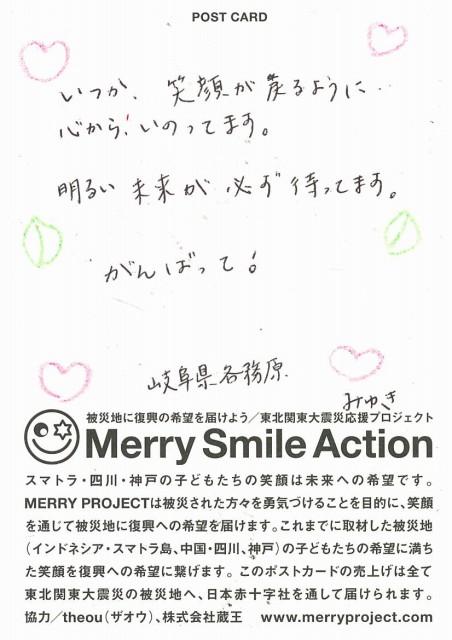 POST CARD
いつか、笑顔が戻るように..
心から、いのってます。
明るい未来が必ず待ってます。
がんばって!
岐阜県各務原
みゆき
被災地に復興の希望を届けよう/東北関東大震災応援プロジェクト
Merry Smile Action
スマトラ・四川・神戸の子どもたちの笑顔は未来への希望です。
MERRY PROJECTは被災された方々を勇気づけることを目的に、笑顔
を通じて被災地に復興への希望を届けます。これまでに取材した被災地
(インドネシア・スマトラ島、中国・四川、神戸)の子どもたちの希望に満ち
た笑顔を復興への希望に繋げます。このポストカードの売上げは全て
東北関東大震災の被災地へ、日本赤十字社を通して届けられます。
協力/theou(ザオウ)、株式会社蔵王 www.merryproject.com